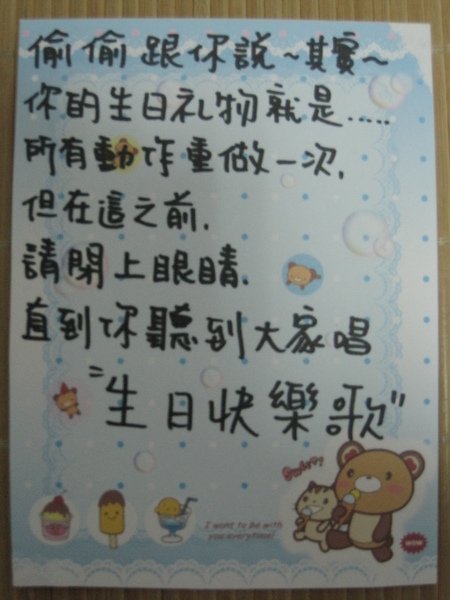 偷偷跟你說~其實~
你的生日礼物就是.....
所有動作重做一次,
但在這之前,
請閉上眼睛,
直到你聽到大家唱
"生日快樂歌"
I want to be with
you, everytime!
WOW